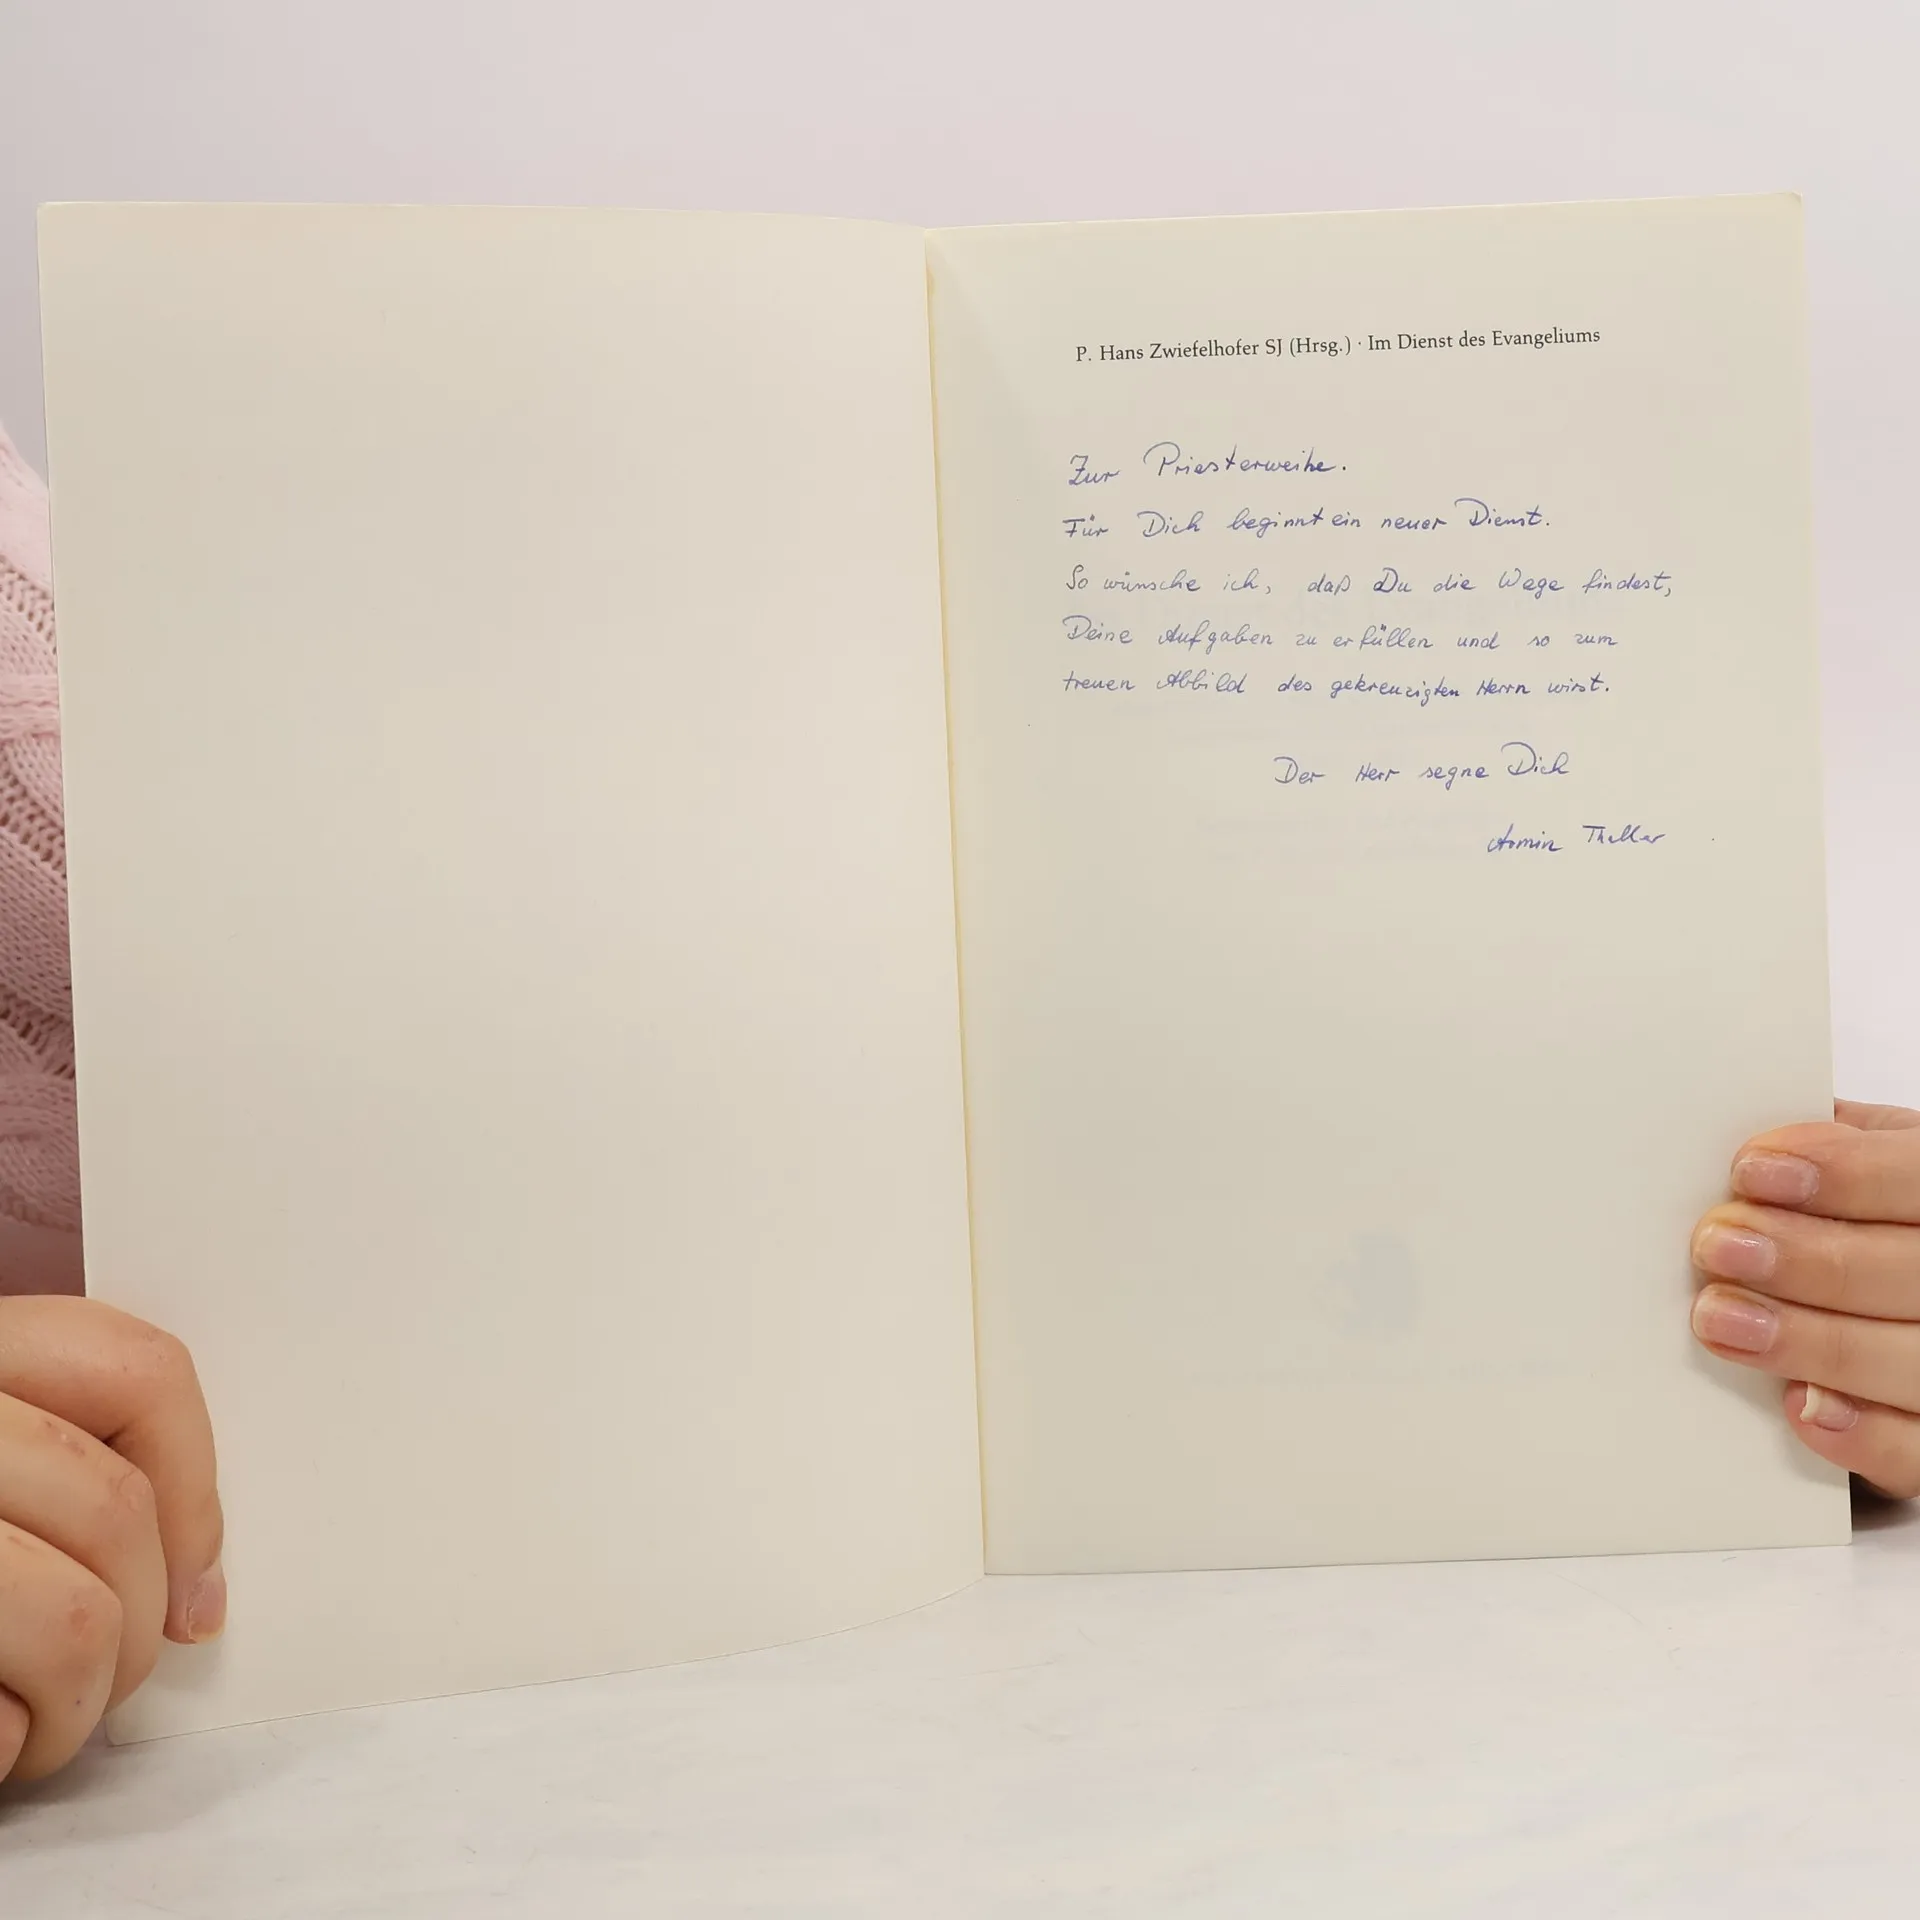 P. Hans Zwiefelhofer SJ (Hrsg.) · Im Dienst des Evangeliums
Zur Priesterweihe.
Für Dich beginnt ein neuer Dienst.
So wünsche ich, daß Du die Wege findest,
Deine Aufgaben zu erfüllen und so zum
treuen Abbild des gekreuzigten Herrn wirst.
Der Herr segne Dich
Armin